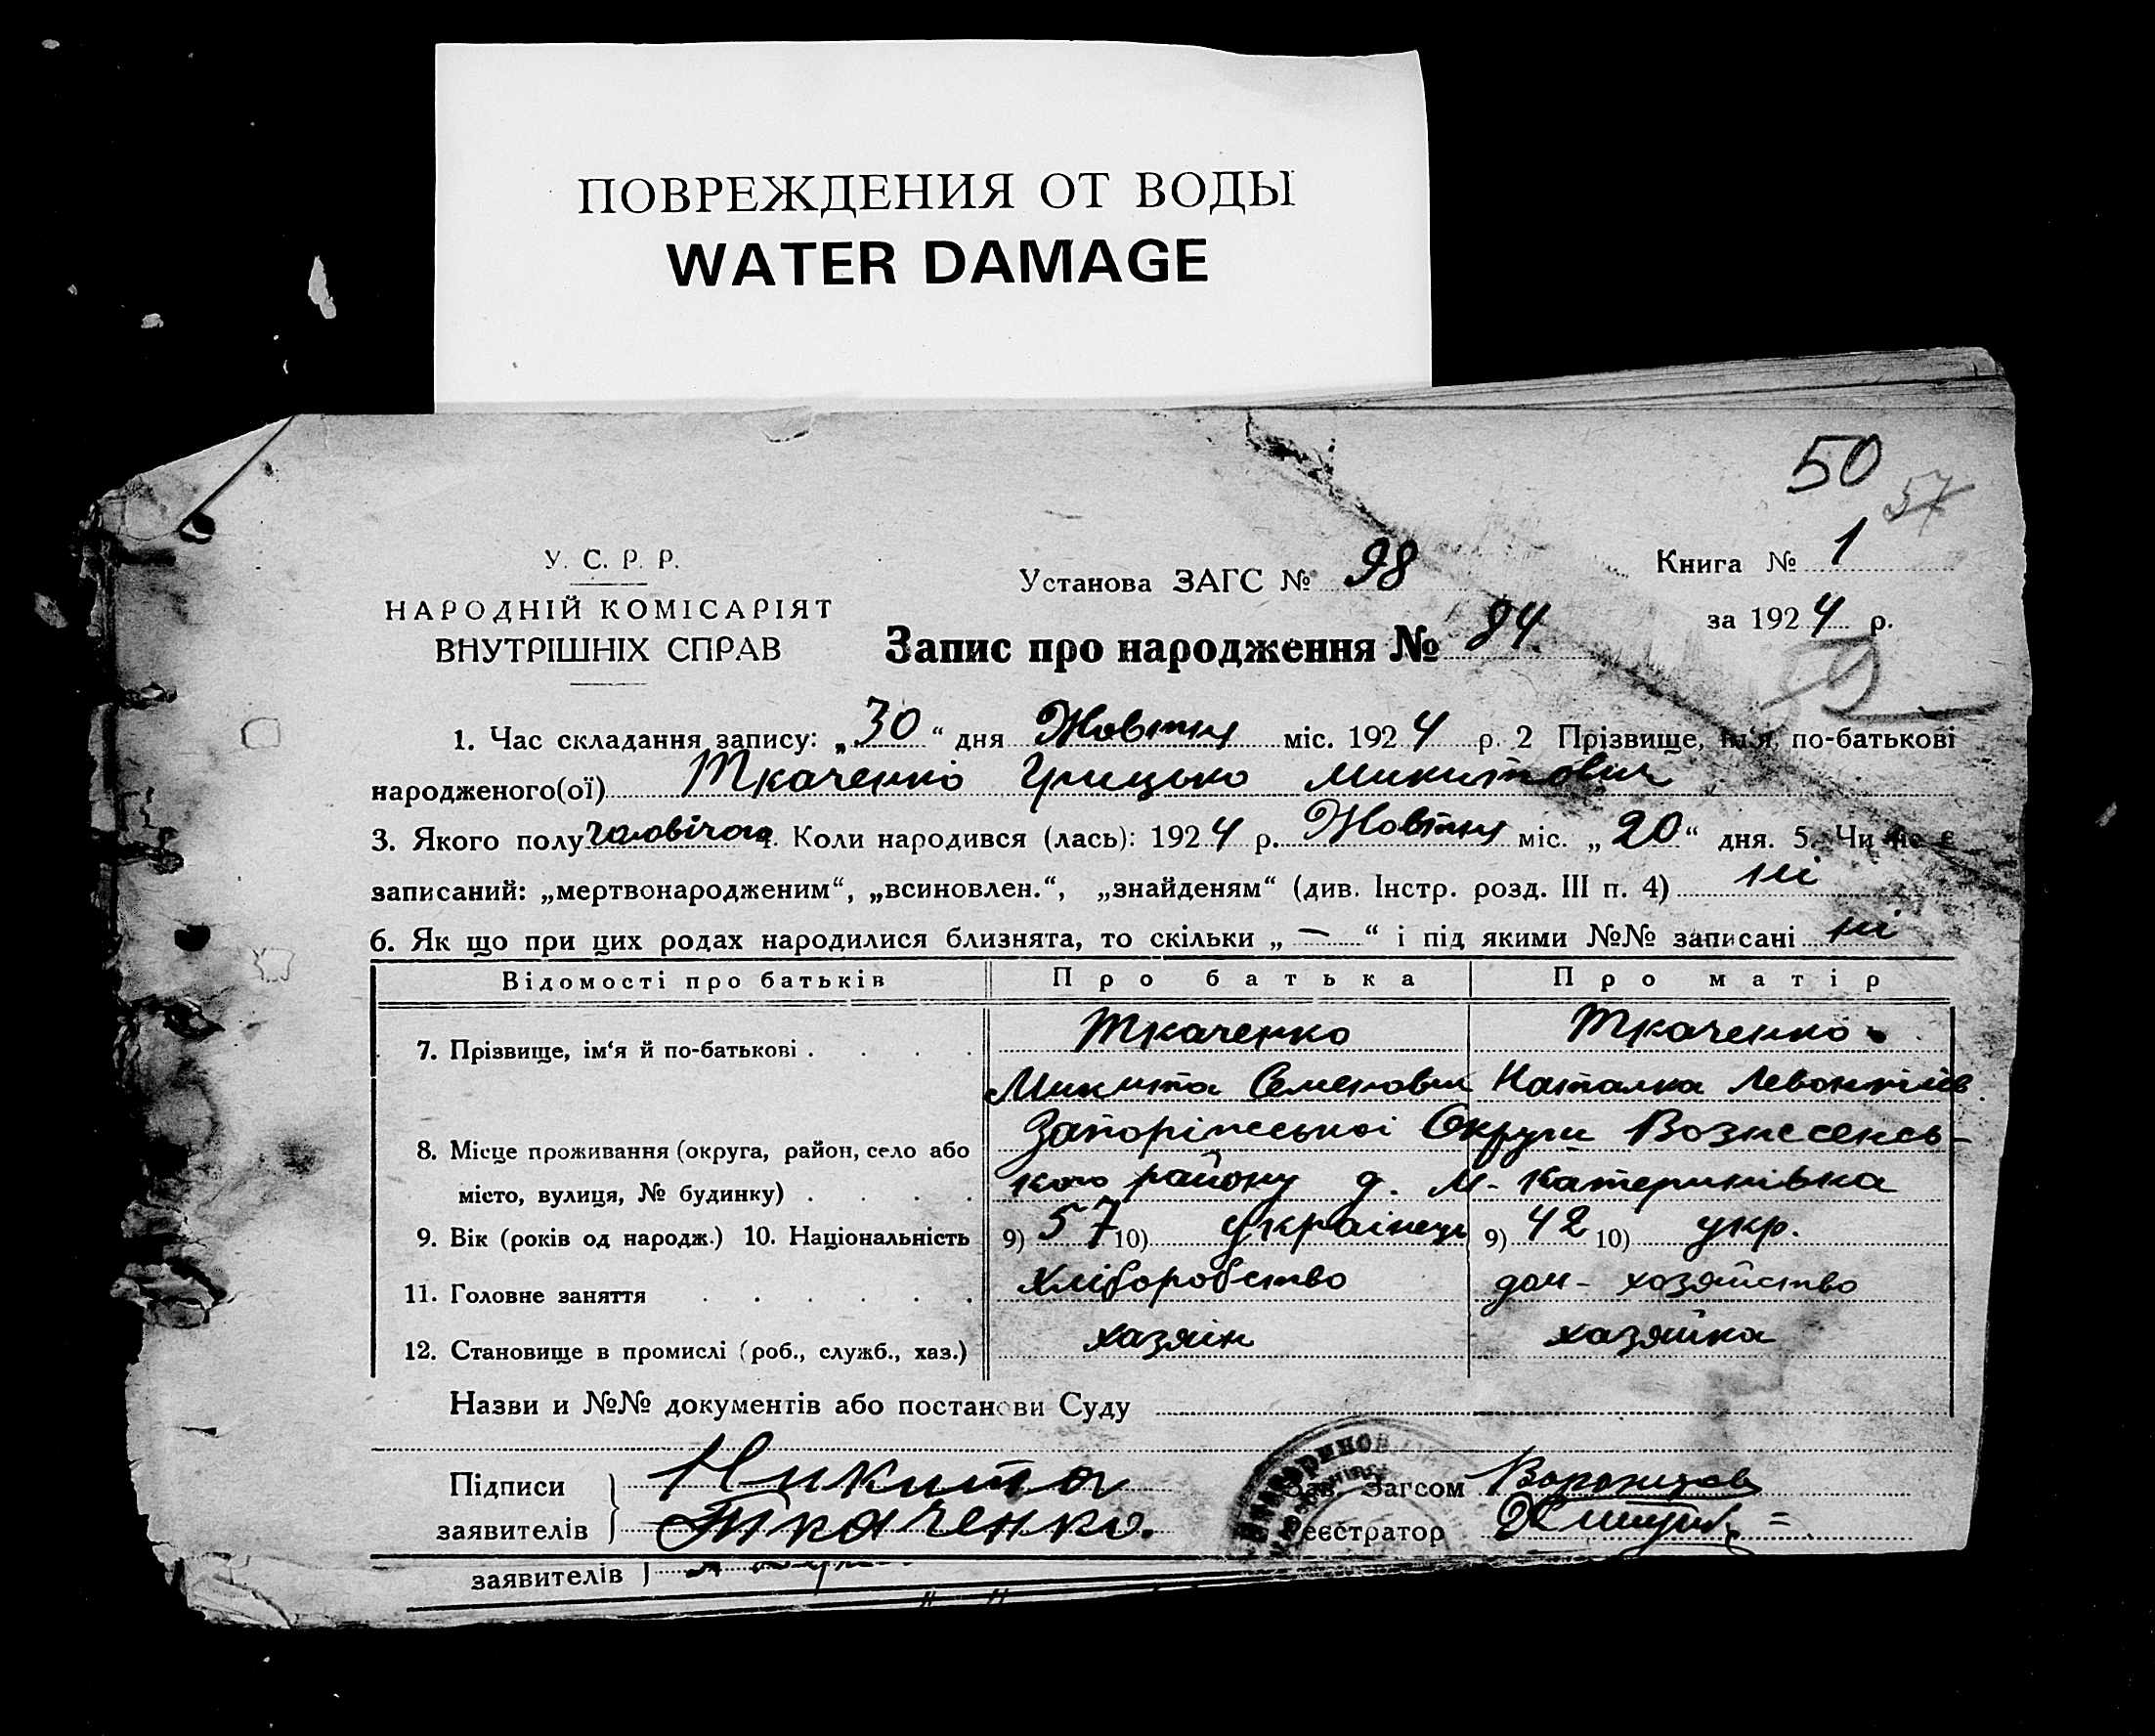 ПОВРЕЖДЕНИЯ ОТ ВОДЫ
WATER DAMAGE
50
57
У. С. Р. Р.
НАРОДНІЙ КОМІСАРІЯТ
ВНУТРІШНІХ СПРАВ
Установа ЗАГС № 98
Книга № 1
за 1924 р.
Запис про народження № 94
59
1. Час складання запису: „30“ дня Жовтня міс. 1924 р. 2 Прізвище, ім'я, по-батькові
народженого(ої) Ткаченко Грицько Микитович
3. Якого полу чоловічого 4. Коли народився (лась): 1924 р. Жовтня міс. „20“ дня. 5. Чи не є
записаний: „мертвонародженим“, „всиновлен.“, „знайденям“ (див. Інстр. розд. III п. 4) ні
6. Як що при цих родах народилися близнята, то скільки „—“ і під якими №№ записані ні
Відомості про батьків Про батька Про матір
7. Прізвище, ім‘я й по-батькові . . . . Ткаченко Ткаченко
Микита Семенович Наталка
8. Місце проживання (округа, район, село або Запоріжської Округи Вознесенсь-
місто, вулиця, № будинку) . . . . кого району д. М-Катеринівка
9. Вік (років од народж.) 10. Національність 9) 57 10) українець 9) 42 10) укр.
11. Головне заняття . . . . . . хліборобство дом-хозяйство
12. Становище в промислі (роб., служб., хаз.) хазяїн хазяйка
Назви и №№ документів або постанови Суду
Підписи
заявителів
Никита
Ткаченко.
Зав. Загсом Воронцов
Реєстратор
заявителів